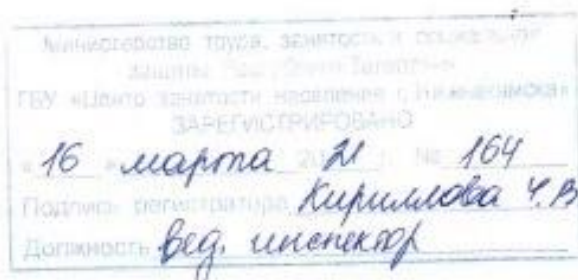 Министерство труда, занятости и социальной
защиты Республики Татарстан
ГБУ «Центр занятости населения г. Нижнекамска»
ЗАРЕГИСТРИРОВАНО
« 16 » марта 2021 г. № 164
Подпись регистратора Кириллова Ч.В
Должность вед. инспектор